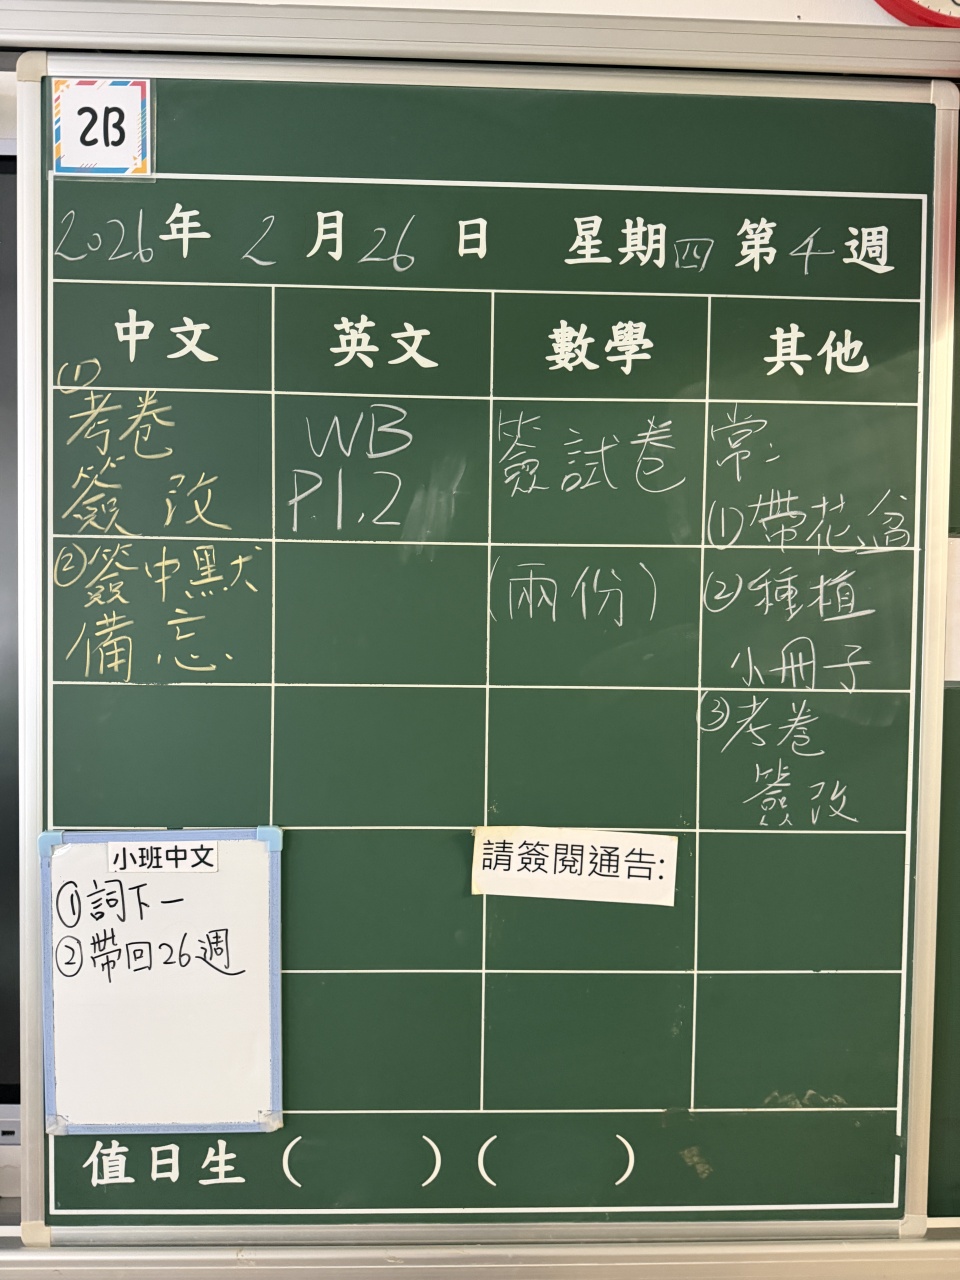 2B
2026年 2月26日 星期四 第4週
中文
(1)
考卷
簽改
②簽中默
備忘.
英文
WB
P.1,2
數學
簽試卷
(兩份)
其他
常:
(1)帶花盆
(2)種植
小冊子
(3)考卷
簽改
小班中文
①詞下一
②帶回26週
請簽閱通告:
值日生 ( ) ( )